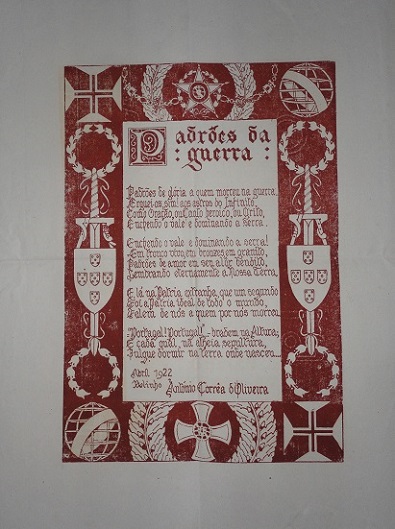 Padrões da
: guerra :
Padrões de glória a quem morreu na guerra,
Erguei-os sim! aos astros do Infinito,
Como Oração, ou Canto heroico, ou Grito,
Enchendo o vale e dominando a serra.
Enchendo o vale e dominando a serra!
Em bronze ou em granito,
Padrões de amor em seu alor bendito,
Lembrando eternamente a Nossa Terra,
E lá na Patria extranha, que um segundo
Foi a Patria ideal de todo o mundo,
Falem de nós a quem por nós morreu.
Portugal! Portugal! - bradem na Altura;
E cada qual, na alheia sepultura,
Julgue dormir na terra onde nasceu...
Abril 1922
Belinho António Corrêa d'Oliveira